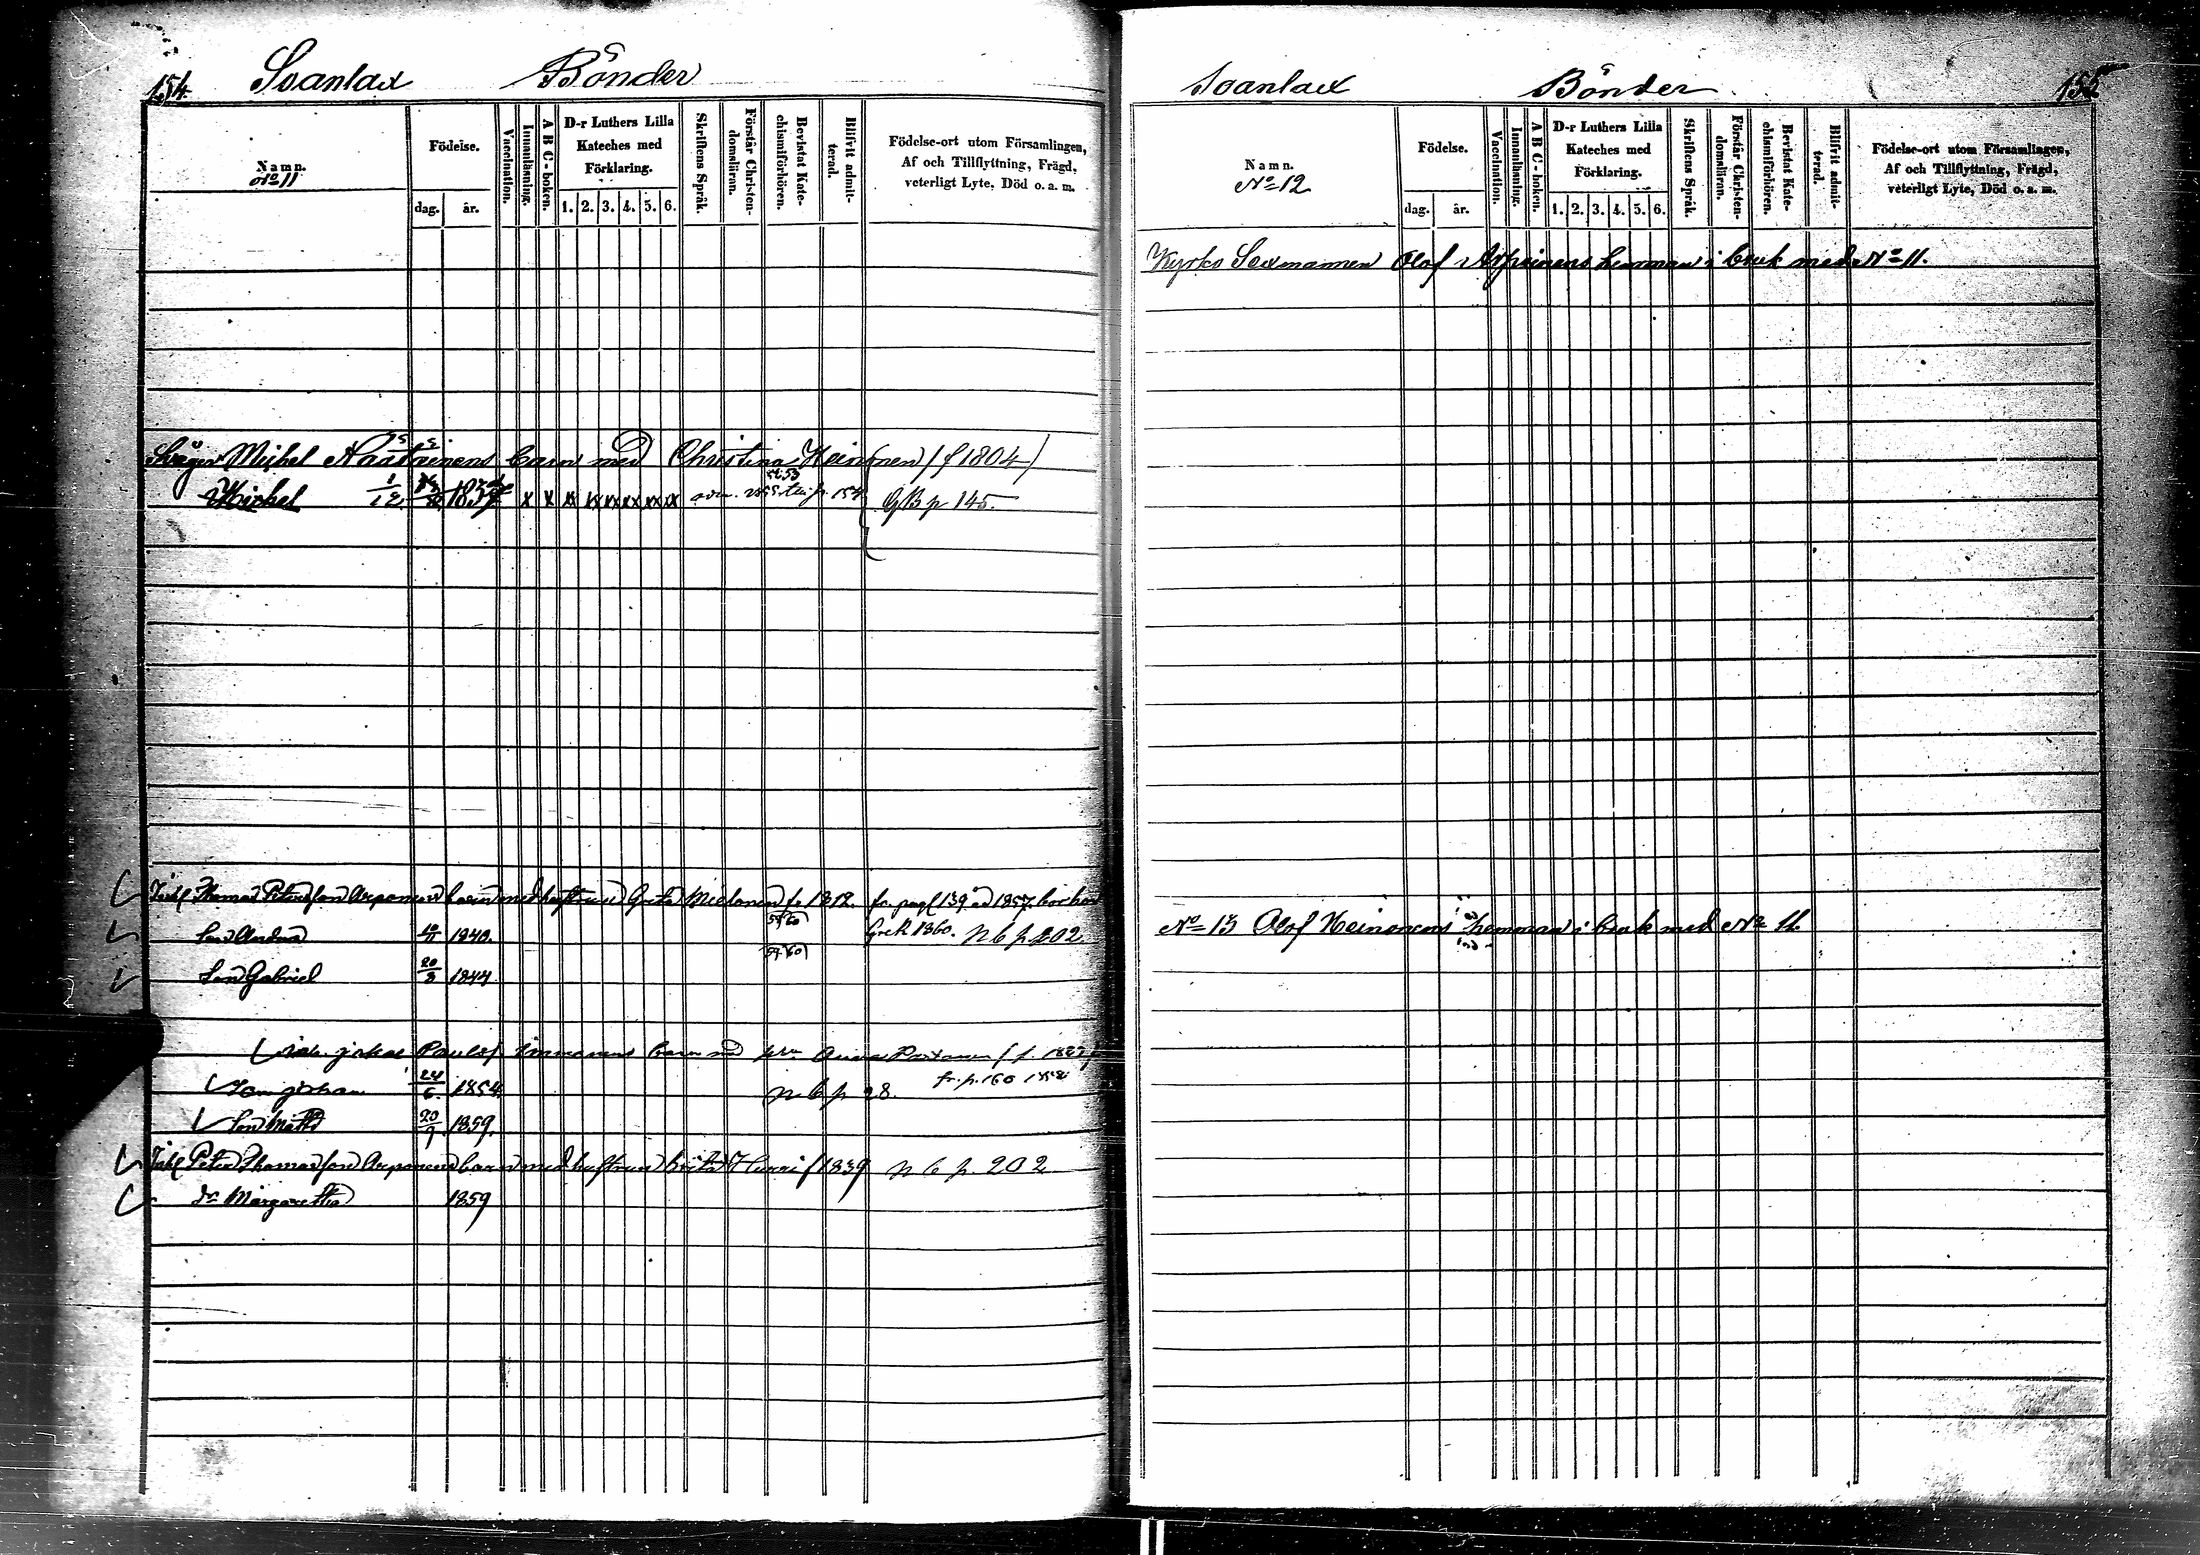 154. Soanlax Bönder
Namn.
No 11
Födelse.
dag. år.
Vaccination.
Innanläsning.
A B C-boken.
D-r Luthers Lilla
Kateches med
Förklaring.
1. 2. 3. 4. 5. 6.
Skriftens Språk.
Förstår Christen-
domsläran.
Bevistat Kate-
chismiförhören.
Blifvit admit-
terad.
Födelse-ort utom Församlingen,
Af och Tillflyttning, Frägd,
veterligt Lyte, Död o. a. m.
Svåger Michel barn med Christina Heinonen (f 1804)
Michel 1/12 1837 x x xx xx xx xx xx xx
GB p 145.
Inh. Thomas Petersson Arponens barn med hustrun Greta Mielonen f. 1812. fr. pag. 139 åd 1857
Son Andrs 10/11 1840. 59 60 1860. N b p 202.
Son Gabriel 20/8 1844. 59 60
Inh. Paulsf. Immonens barn med Anna
Son Johan 24/6. 1854. N b p 28. fr. p. 160 1858
Son Matts 20/9 1859.
Inh. Peter Thomasson Arponens barn med hustrun Brita Hurri f 1839 N b p. 202
dr Margaretha 1859
Soanlax Bönder 155
Namn.
No 12
Födelse.
dag. år.
Vaccination.
Innanläsning.
A B C-boken.
D-r Luthers Lilla
Kateches med
Förklaring.
1. 2. 3. 4. 5. 6.
Skriftens Språk.
Förstår Christen-
domsläran.
Bevistat Kate-
chismiförhören.
Blifvit admit-
terad.
Födelse-ort utom Församlingen,
Af och Tillflyttning, Frägd,
veterligt Lyte, Död o. a. m.
Kyrko Sexmannen Olof Arponens hemman i bruk med No 11.
No 13 Olof Heinonens hemman i bruk med No 11.